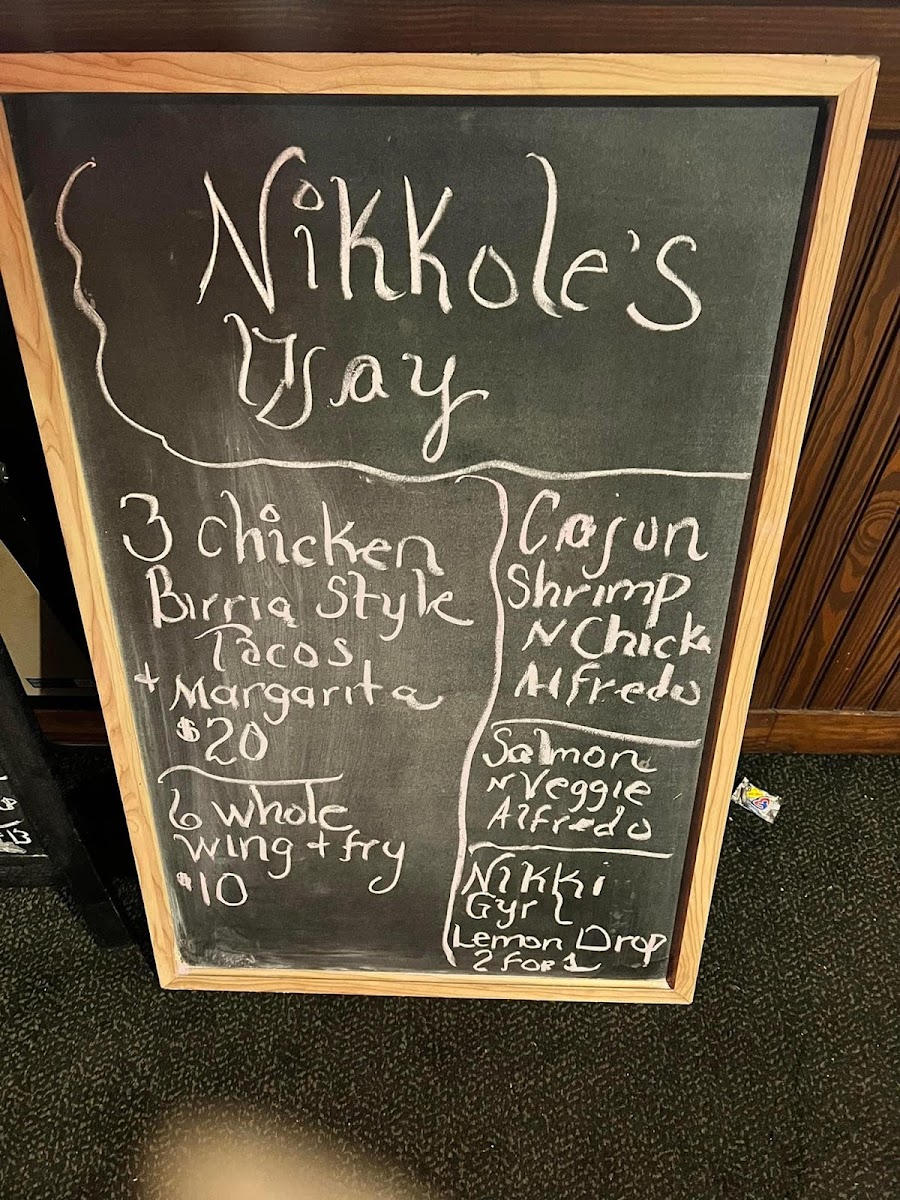 Nikkole's
Day
3 chicken
Birria Style
Tacos
+ Margarita
$20
6 whole
wing + fry
$10
Cajun
Shrimp
N Chick
Alfredo
Salmon
N Veggie
Alfredo
Nikki
Gyrl
Lemon Drop
2 for 1